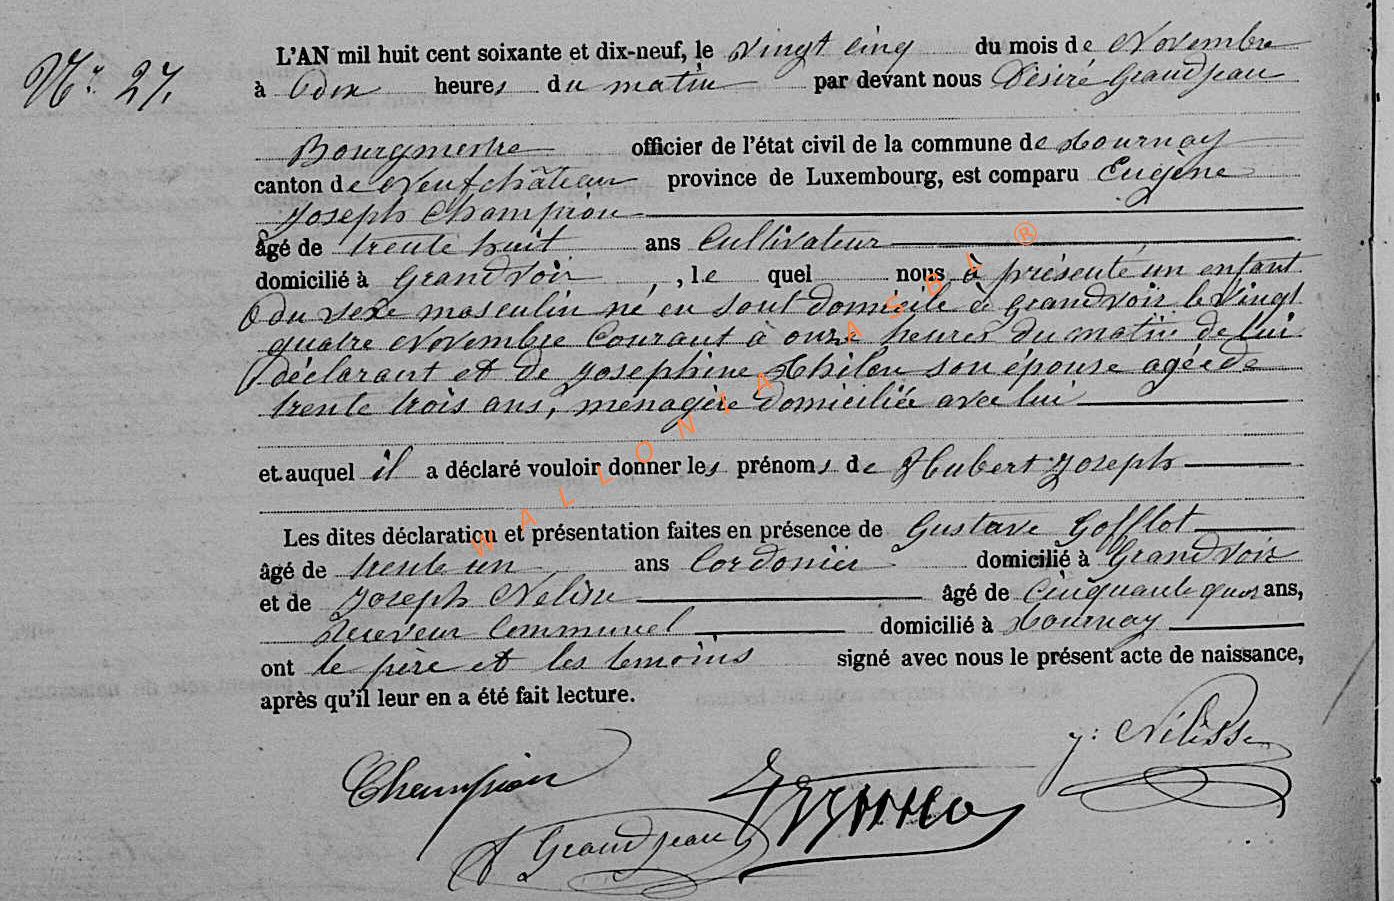 N° 27.
L'AN mil huit cent soixante et dix-neuf, le vingt cinq du mois de Novembre
à dix heures du matin par devant nous Désiré Grandjean
Bourgmestre officier de l'état civil de la commune de Tournay
canton de Neufchâteau province de Luxembourg, est comparu Eugène
Joseph Champion
âgé de trente huit ans Cultivateur
domicilié à Grandvoir , le quel nous à présenté un enfant
du sexe masculin né en sont domicile à Grandvoir le vingt
quatre Novembre courant à onze heures du matin de lui
déclarant et de Josephine Thilen son épouse agée de
trente trois ans, ménagère domiciliée avec lui
et auquel il a déclaré vouloir donner les prénoms de Hubert Joseph
Les dites déclaration et présentation faites en présence de Gustave Gofflot
âgé de trente un ans Cordonier domicilié à Grandvoir
et de Joseph Nelisse âgé de Cinquante quatre ans,
receveur Communel domicilié à Tournay
ont le père et les temoins signé avec nous le présent acte de naissance,
après qu'il leur en a été fait lecture.
J: Nélisse
Champion
D Grandjean
WALLONIA ASBL ®